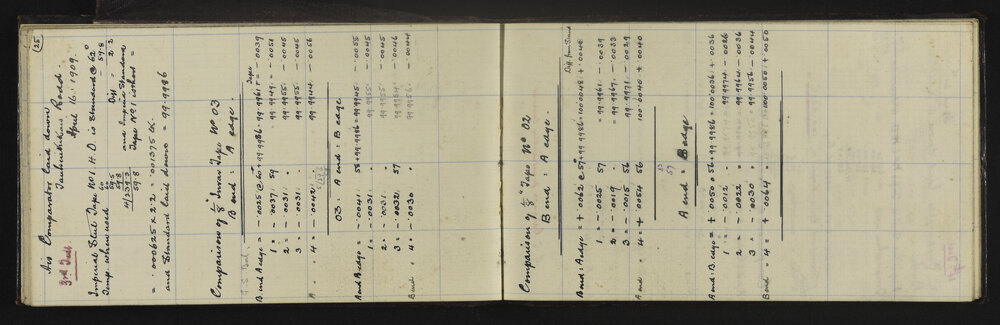 (25)
Air Comparator laid down
3rd Test Tauherenikau Road
April 16: 1909.
Imperial Steel Tape No 1. H.D. is Standard @ 62°
Temp. when used 60 - 59.8
60 Diff = 2.2
59.5
59.8
4/239.3 and Imperial Standard
59.8 Tape No 1 is short =
= .000625 x 2.2 = .001375 lk.
and Standard laid down = 99.9986
Comparison of 1/8" Invar Tape No 03
B end: A edge.
T.S. Bal. Tape
B end A edge = - .0025 @ 60 + 99.9986 = 99.9961 = - .0039
" 1 = - .0037 : 59 = 99.9949 = - .0051
2 = - .0031 : " 99.9955 = - .0045
3 = - .0031 : " 99.9955 = - .0045
A " 4 = - .0042 : 99.9944 - .0056
03. A end: B edge
A end B edge = - .0041 : 58 + 99.9986 = 99.9945 - .0055
1 = - .0031 . 99.9955 - .0045
" 2 = - .0031 . " 99.9955 - .0045
" 3 = - .0032 57 99.9954 - .0046
B end " 4 = - .0030 " 99.9956 - .0044
Comparison of 1/8" Tape No 02
B end: A edge.
Diff. from Stand
B end: A edge = + .0062 @ 57 + 99.9986 = 100.0048 + .0048
1 = - .0025 57 = 99.9961 - .0039
" 2 = - .0019 " = 99.9967 - .0033
" 3 = - .0015 56 99.9971 - .0029
A end " 4 = + .0054 56 100.0040 + .0040
57
A end = B edge
A end: B edge = + .0050 @ 56 + 99.9986 = 100.0036 + .0036
1 = - .0012 . " 99.9974 - .0026
" 2 = - .0022 " 99.9964 - .0036
" 3 = - .0030 " 99.9956 - .0044
B end " 4 = + .0064 " 100.0050 + .0050